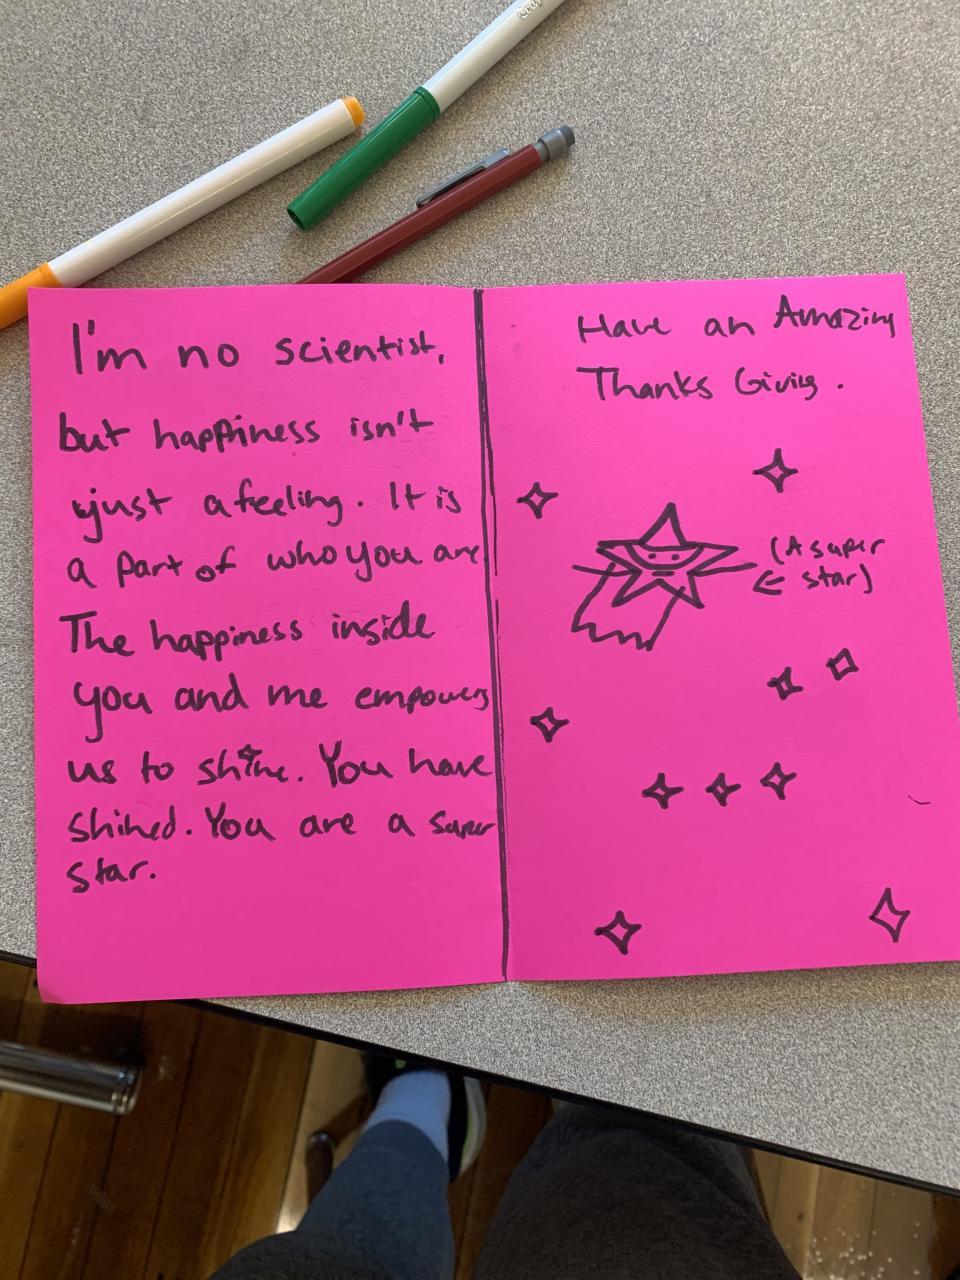 I'm no scientist,
but happiness isn't
just a feeling. It is
a part of who you are
The happiness inside
you and me empowers
us to shine. You have
shined. You are a super
star.
Have an Amazing
Thanks Giving.
(A super
star)